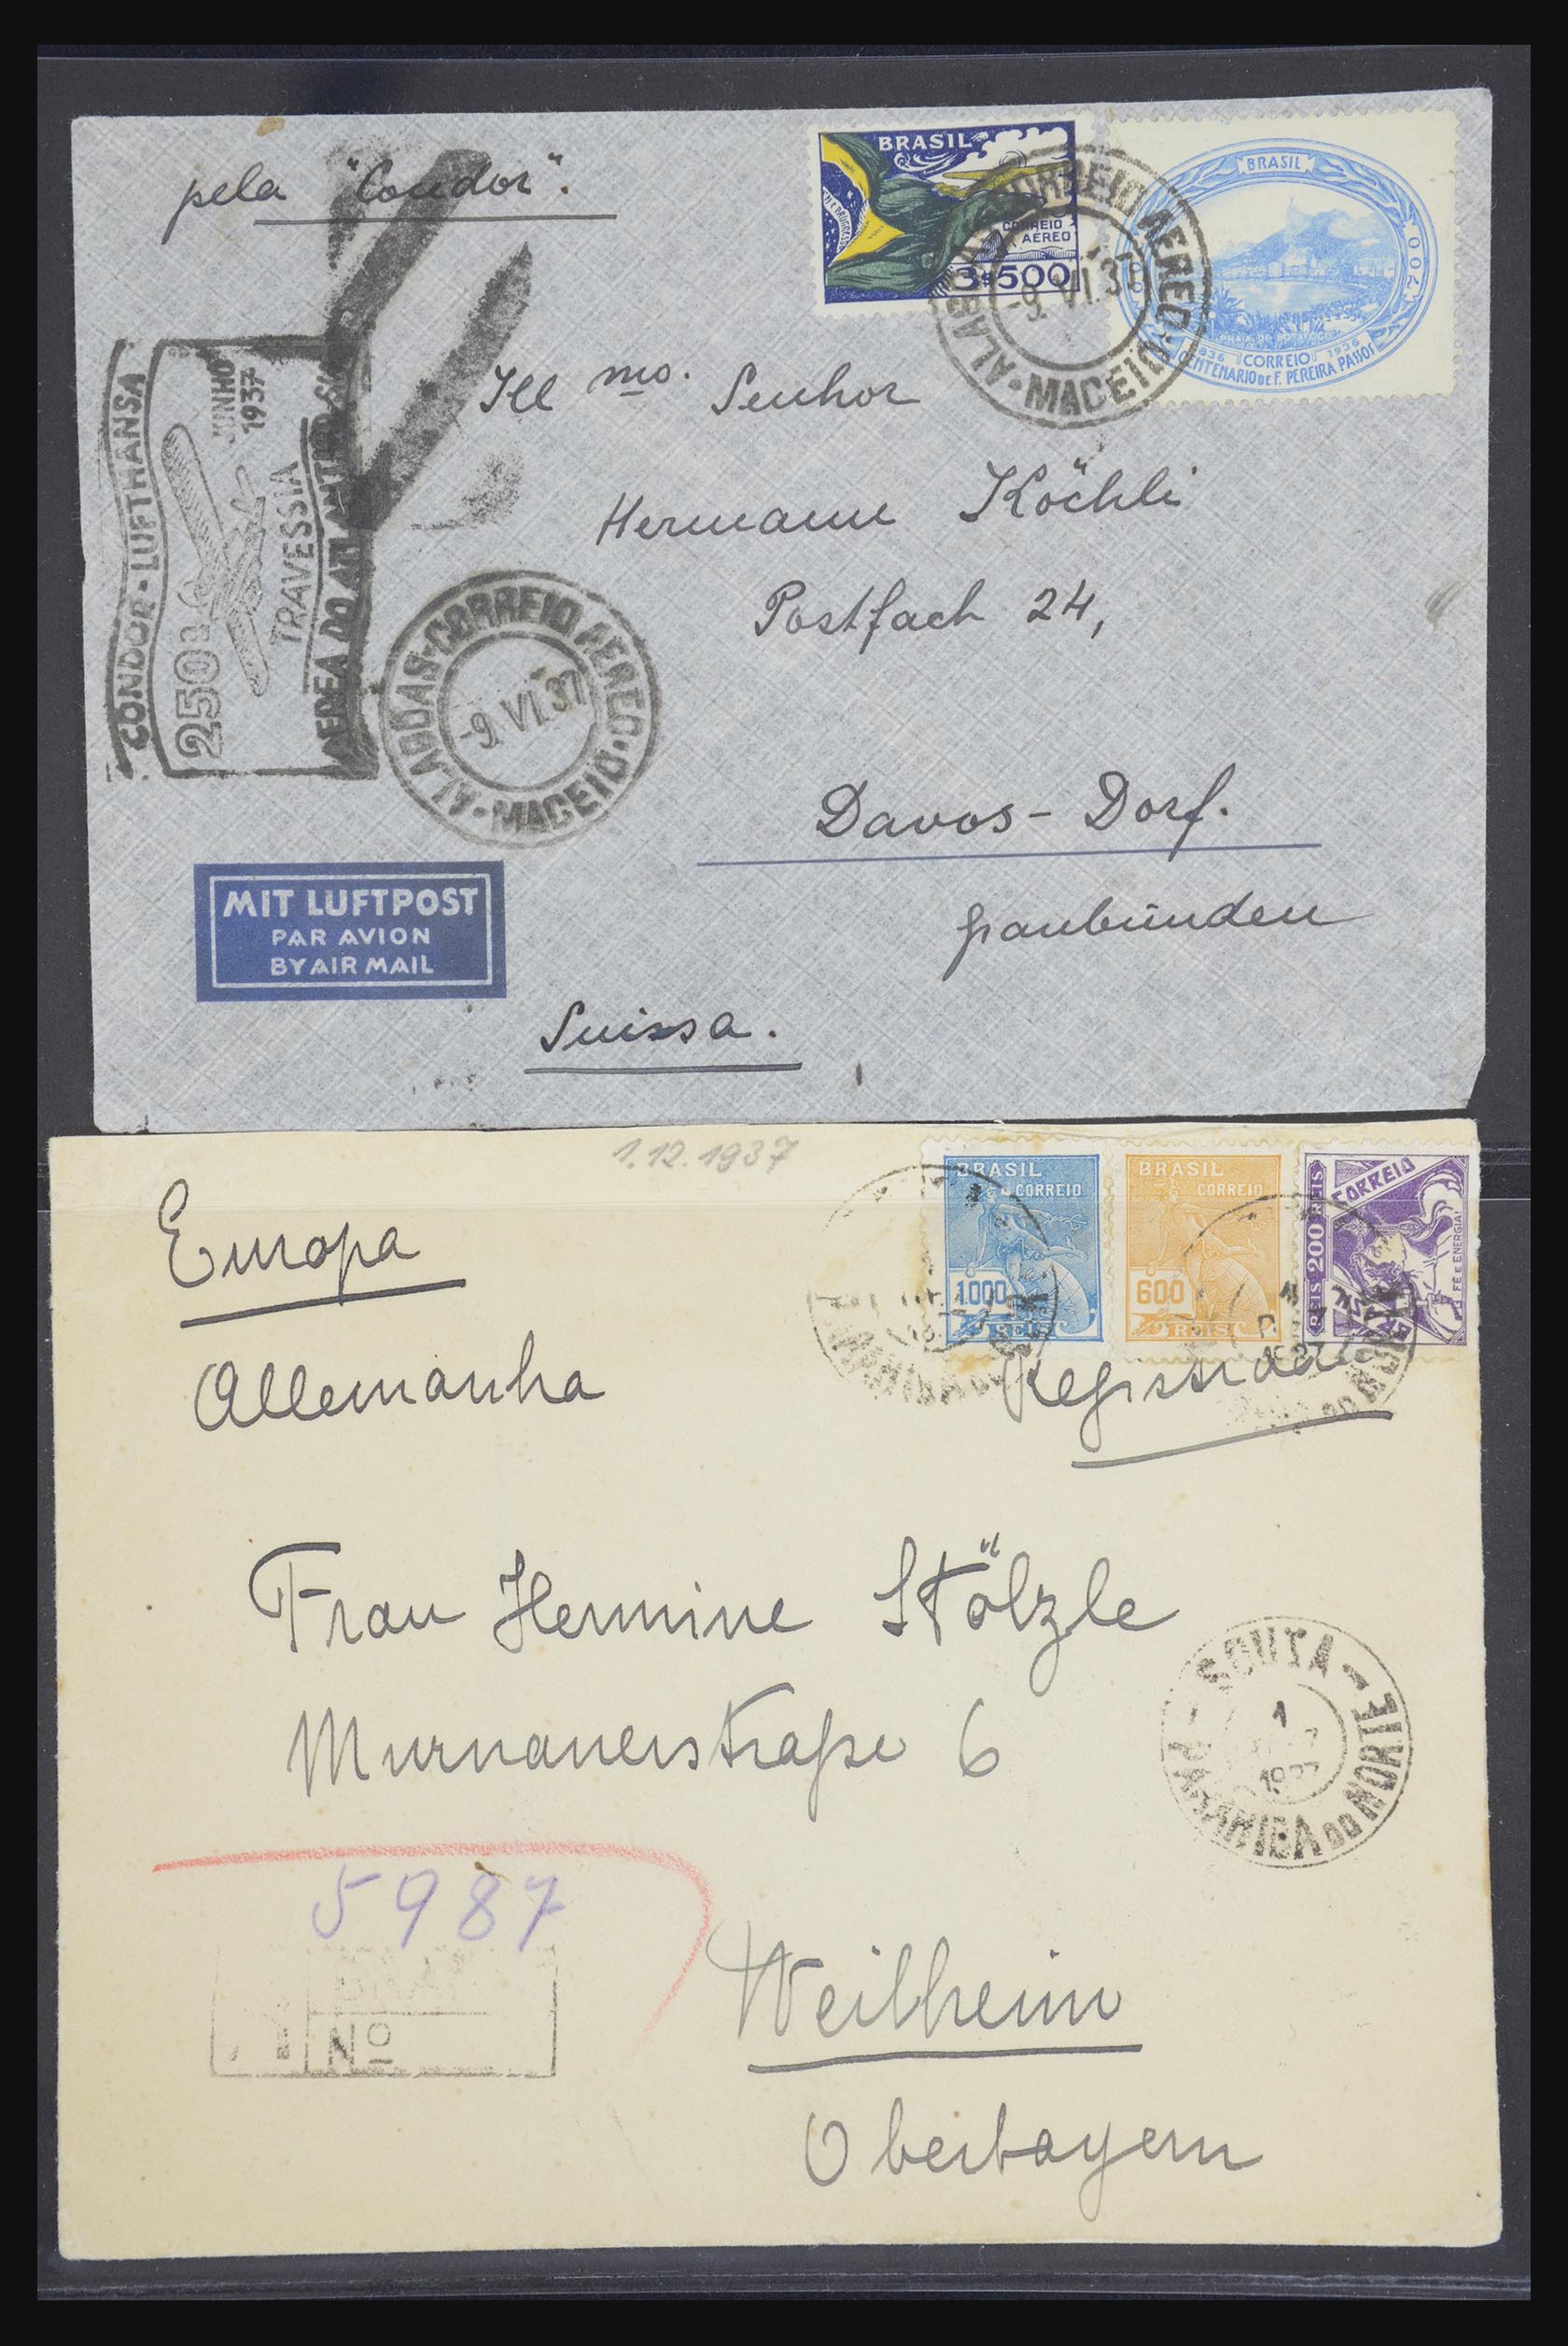 pela "Condor".
BRASIL
CORREIO
AEREO
3$500
BRASIL
700
1836 CORREIO 1936
CENTENARIO DE F. PEREIRA PASSOS
ALAGOAS·CORREIO AEREO·MACEIO
-9.VI.37
CONDOR·LUFTHANSA
250
JUNHO
1937
TRAVESSIA
AEREA DO ATLANTICO SUL
Illmo. Senhor
Hermann Köchli
Postfach 24,
ALAGOAS·CORREIO AEREO·MACEIO
-9.VI.37
Davos-Dorf.
Graubünden
MIT LUFTPOST
PAR AVION
BY AIR MAIL
Suissa.
1.12.1937
Europa
BRASIL
CORREIO
1000
REIS
BRASIL
CORREIO
600
REIS
CORREIO
REIS 200 REIS
FÉ E ENERGIA!
BRASIL
Allemanha
Registrada
Frau Hermine Stölzle
Murnauerstraße 6
SOUZA
1
1937
PARAHIBA DO NORTE
5987
Nº
Weilheim
Oberbayern